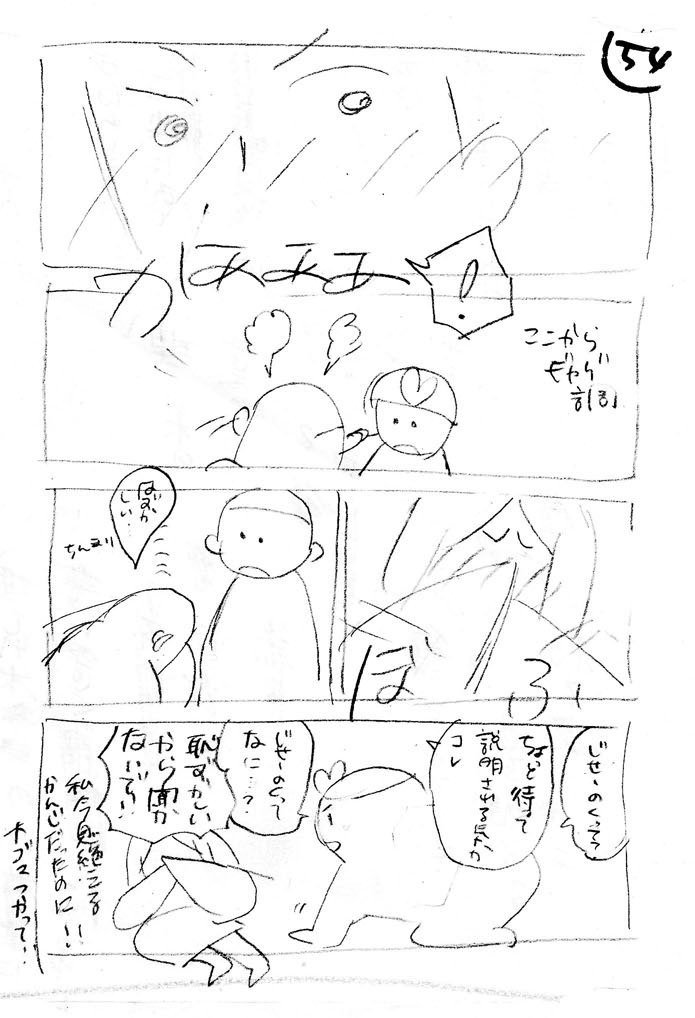 54
かぁぁぁ
!
ここから
ギャグ
調
はずか
しい…
ちんまり
ぼふっ
じせーのくって
ちょっと待って
説明されるんか
コレ
じせーのくって
なに…?
恥ずかしい
から聞か
ないで!!
私今
かんじだったのに!!
ナゴスつかって…